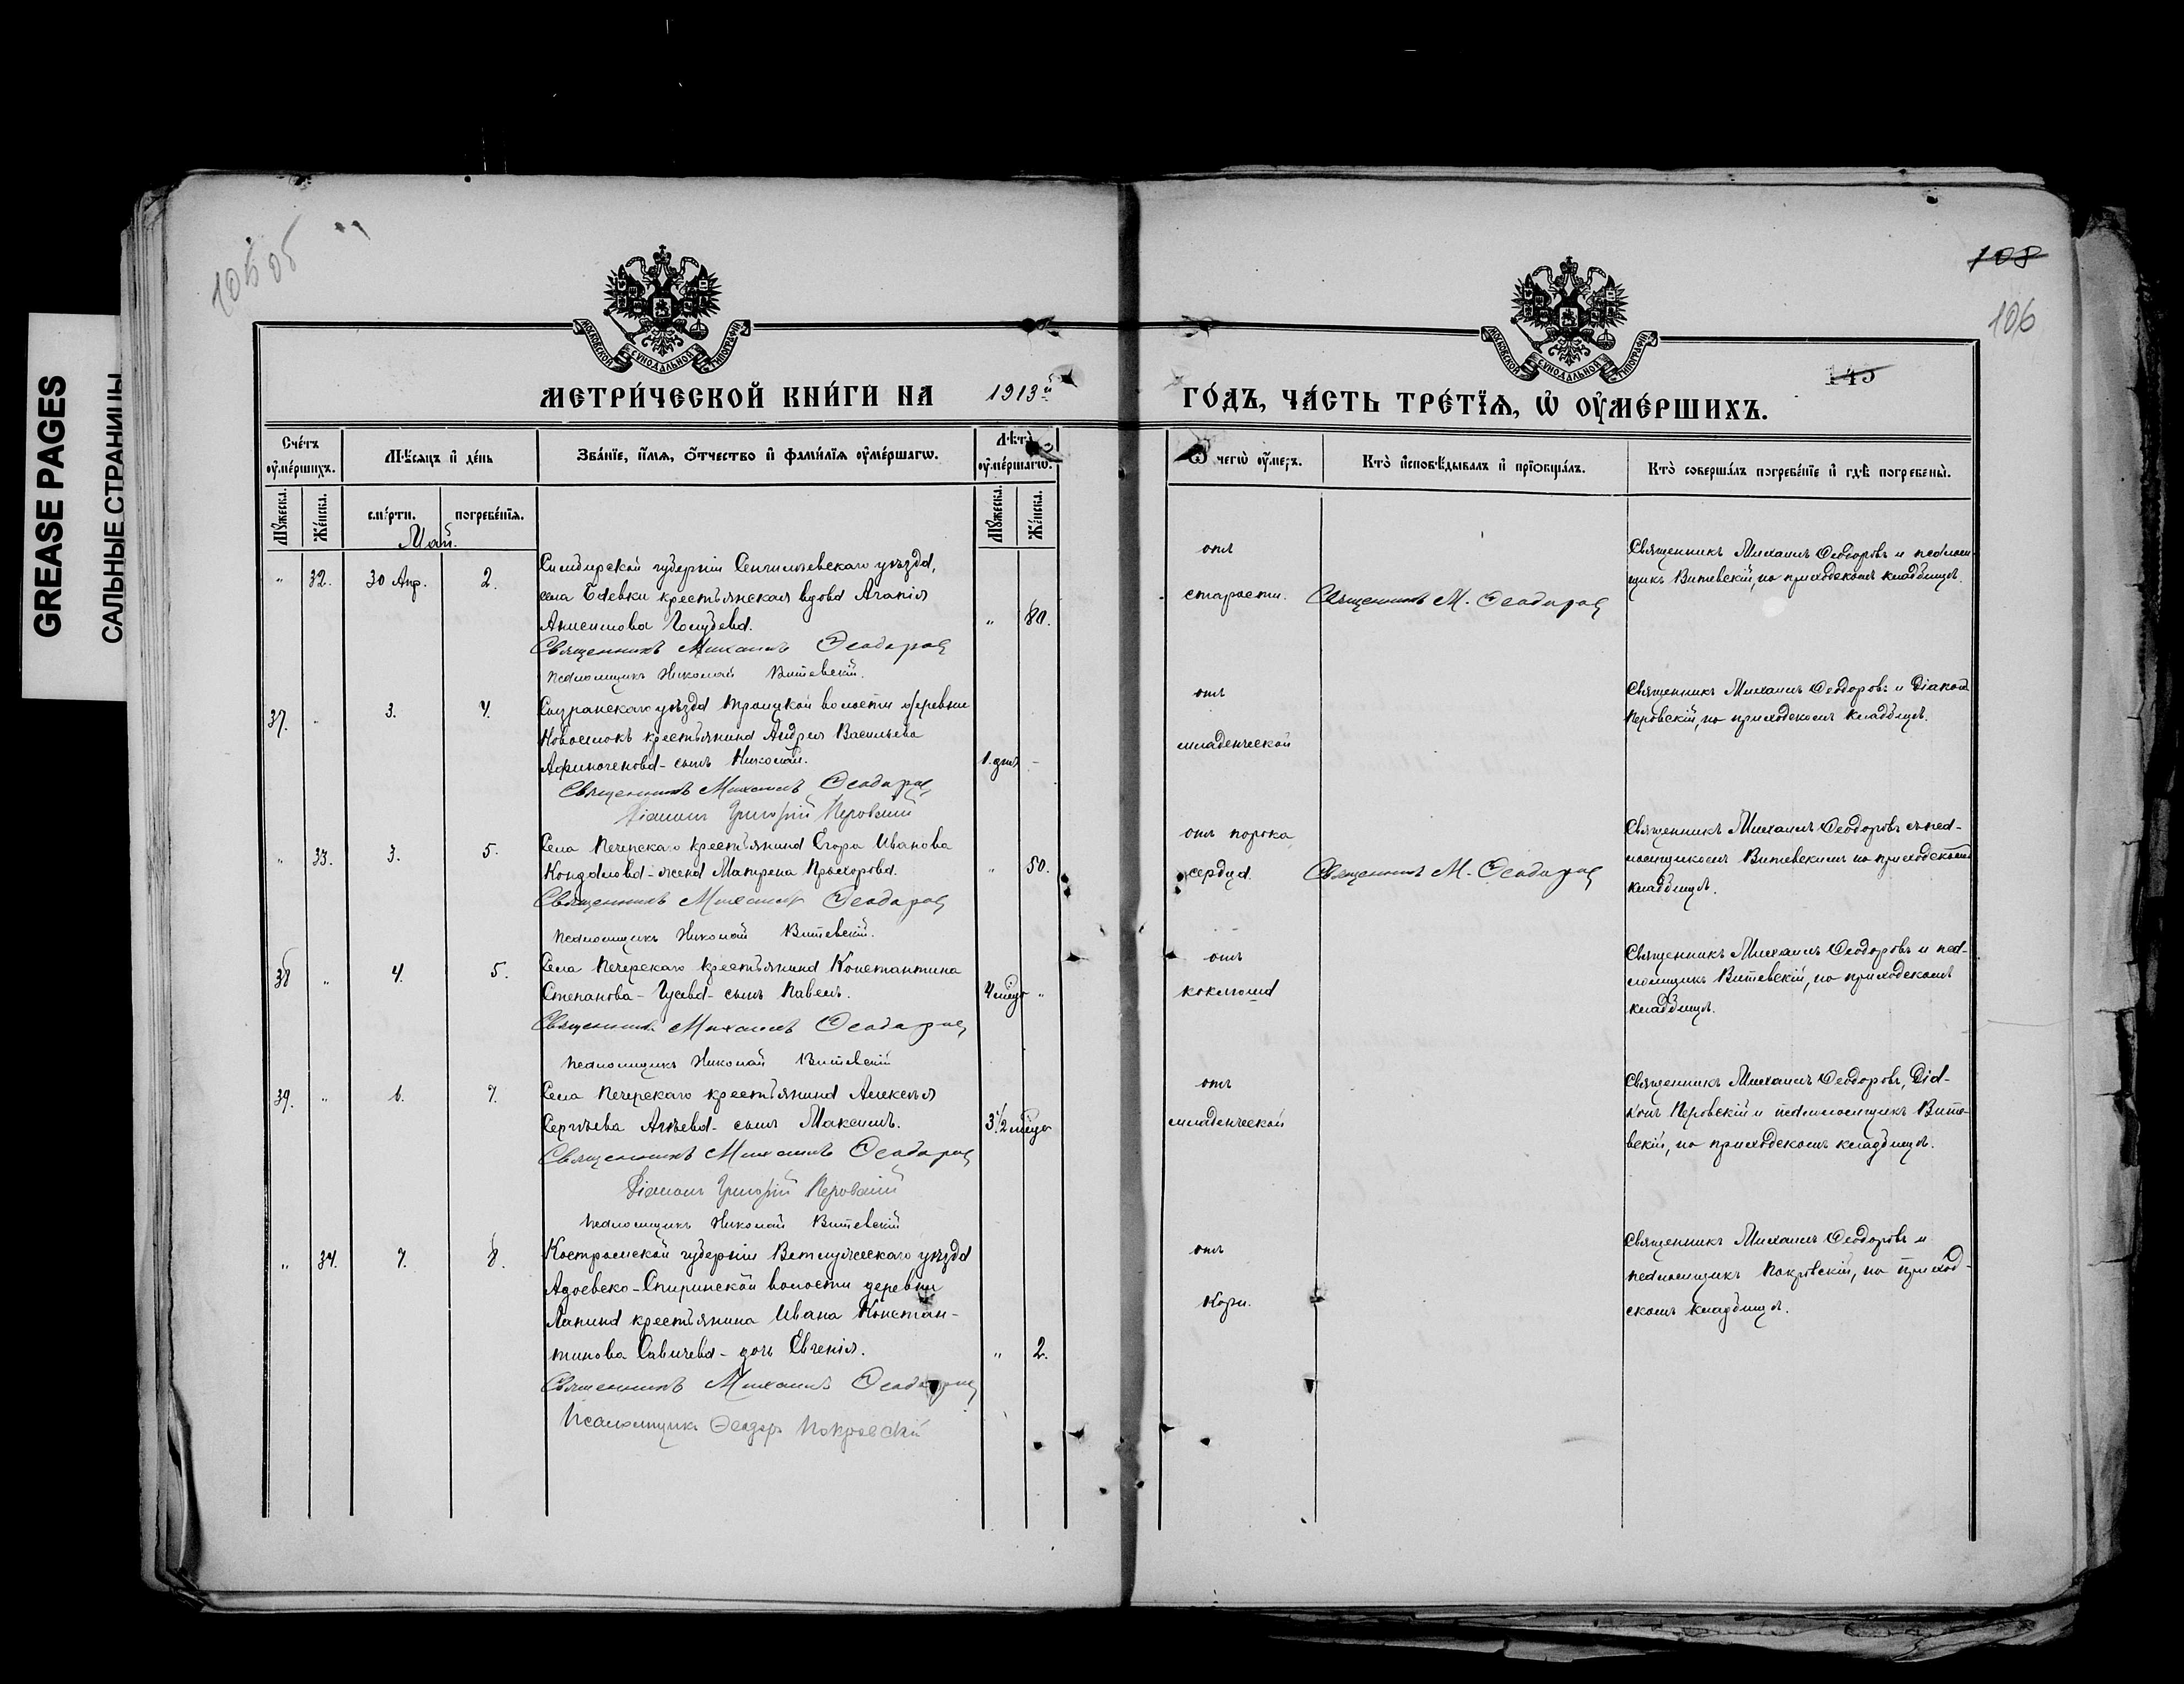 GREASE PAGES
САЛЬНЫЕ СТРАНИЦЫ
106 об
108
106
145
МОСКОВСКОЙ СУНОДАЛЬНОЙ ТИПОГРАФІИ
МОСКОВСКОЙ СУНОДАЛЬНОЙ ТИПОГРАФІИ
МЕТРИ́ЧЕСКОЙ КНИ́ГИ НА 1913й ГО́ДЪ, ЧА́СТЬ ТРЕ́ТЇѦ, Ѡ҆ ОУ҆МЕ́РШИХЪ.
Сче́тъ оу҆ме́ршихъ.
Мѣ́сяцъ и҆ де́нь
Зва́нїе, и҆́мѧ, ѻ҆́тчество и҆ фами́лїѧ оу҆ме́ршагѡ.
Лѣ́та оу҆ме́ршагѡ.
Ѿ чегѡ̀ оу҆́меръ.
Кто̀ и҆сповѣ́дывалъ и҆ прїѡбща́лъ.
Кто̀ соверша́лъ погребе́нїе и҆ гдѣ̀ погребены̀.
Мꙋжеска.
Же́нска.
сме́рти.
погребе́нїѧ.
Мꙋжеска.
Же́нска.
Май.
" 32. 30 Апр. 2.
Симбирской губерніи Сенгилеевскаго уѣзда,
села крестьянская вдова Агапія
Анисимова Голубева. " 80.
Священникъ Михаилъ Ѳеодоровъ
псаломщикъ Николай Витевскій.
отъ
старости. Священникъ М. Ѳеодоровъ
Священникъ Михаилъ Ѳеодоровъ и псалом-
щикъ Витевскій, на приходскомъ кладбищѣ.
37. " 3. 4.
Сызранскаго уѣзда Троицкой волости деревни
крестьянина Андрея Васильева
Афиногенова - сынъ Николай. 1. дня -
Священникъ Михаилъ Ѳеодоровъ
Діаконъ Григорій Перовскій
отъ
младенческой
Священникъ Михаилъ Ѳеодоровъ и Діаконъ
Перовскій, на приходскомъ кладбищѣ.
" 33. 3. 5.
Села Печерскаго крестьянина Егора Иванова
жена Матрена Прохорова. " 50.
Священникъ Михаилъ Ѳеодоровъ
псаломщикъ Николай Витевскій.
отъ порока
сердца. Священникъ М. Ѳеодоровъ
Священникъ Михаилъ Ѳеодоровъ съ пса-
ломщикомъ Витевскимъ на приходскомъ
кладбищѣ.
38 " 4. 5.
Села Печерскаго крестьянина Константина
Степанова - Гусева - сынъ Павелъ. 4 мѣсяц "
Священникъ Михаилъ Ѳеодоровъ
псаломщикъ Николай Витевскій
отъ
коклюша
Священникъ Михаилъ Ѳеодоровъ и пса-
ломщикъ Витевскій, на приходскомъ
кладбищѣ.
39. " 6. 7.
Села Печерскаго крестьянина Алексѣя
Сергѣева Агѣева - сынъ Максимъ. 3 1/2 мѣсяц
Священникъ Михаилъ Ѳеодоровъ
Діаконъ Григорій Перовскій
псаломщикъ Николай Витевскій
отъ
младенческой
Священникъ Михаилъ Ѳеодоровъ, Діа-
конъ Перовскій и псаломщикъ Вите-
вскій, на приходскомъ кладбищѣ.
" 34. 7. 8.
Костромской губерніи Ветлужскаго уѣзда
Адоевско-Спиринской волости деревни
Лапина крестьянина Ивана Констан-
тинова Савичева - дочь Евгенія. " 2.
Священникъ Михаилъ Ѳеодоровъ
Псаломщикъ Ѳеодоръ Покровскій
отъ
Кори.
Священникъ Михаилъ Ѳеодоровъ и
псаломщикъ Покровскій, на приход-
скомъ кладбищѣ.